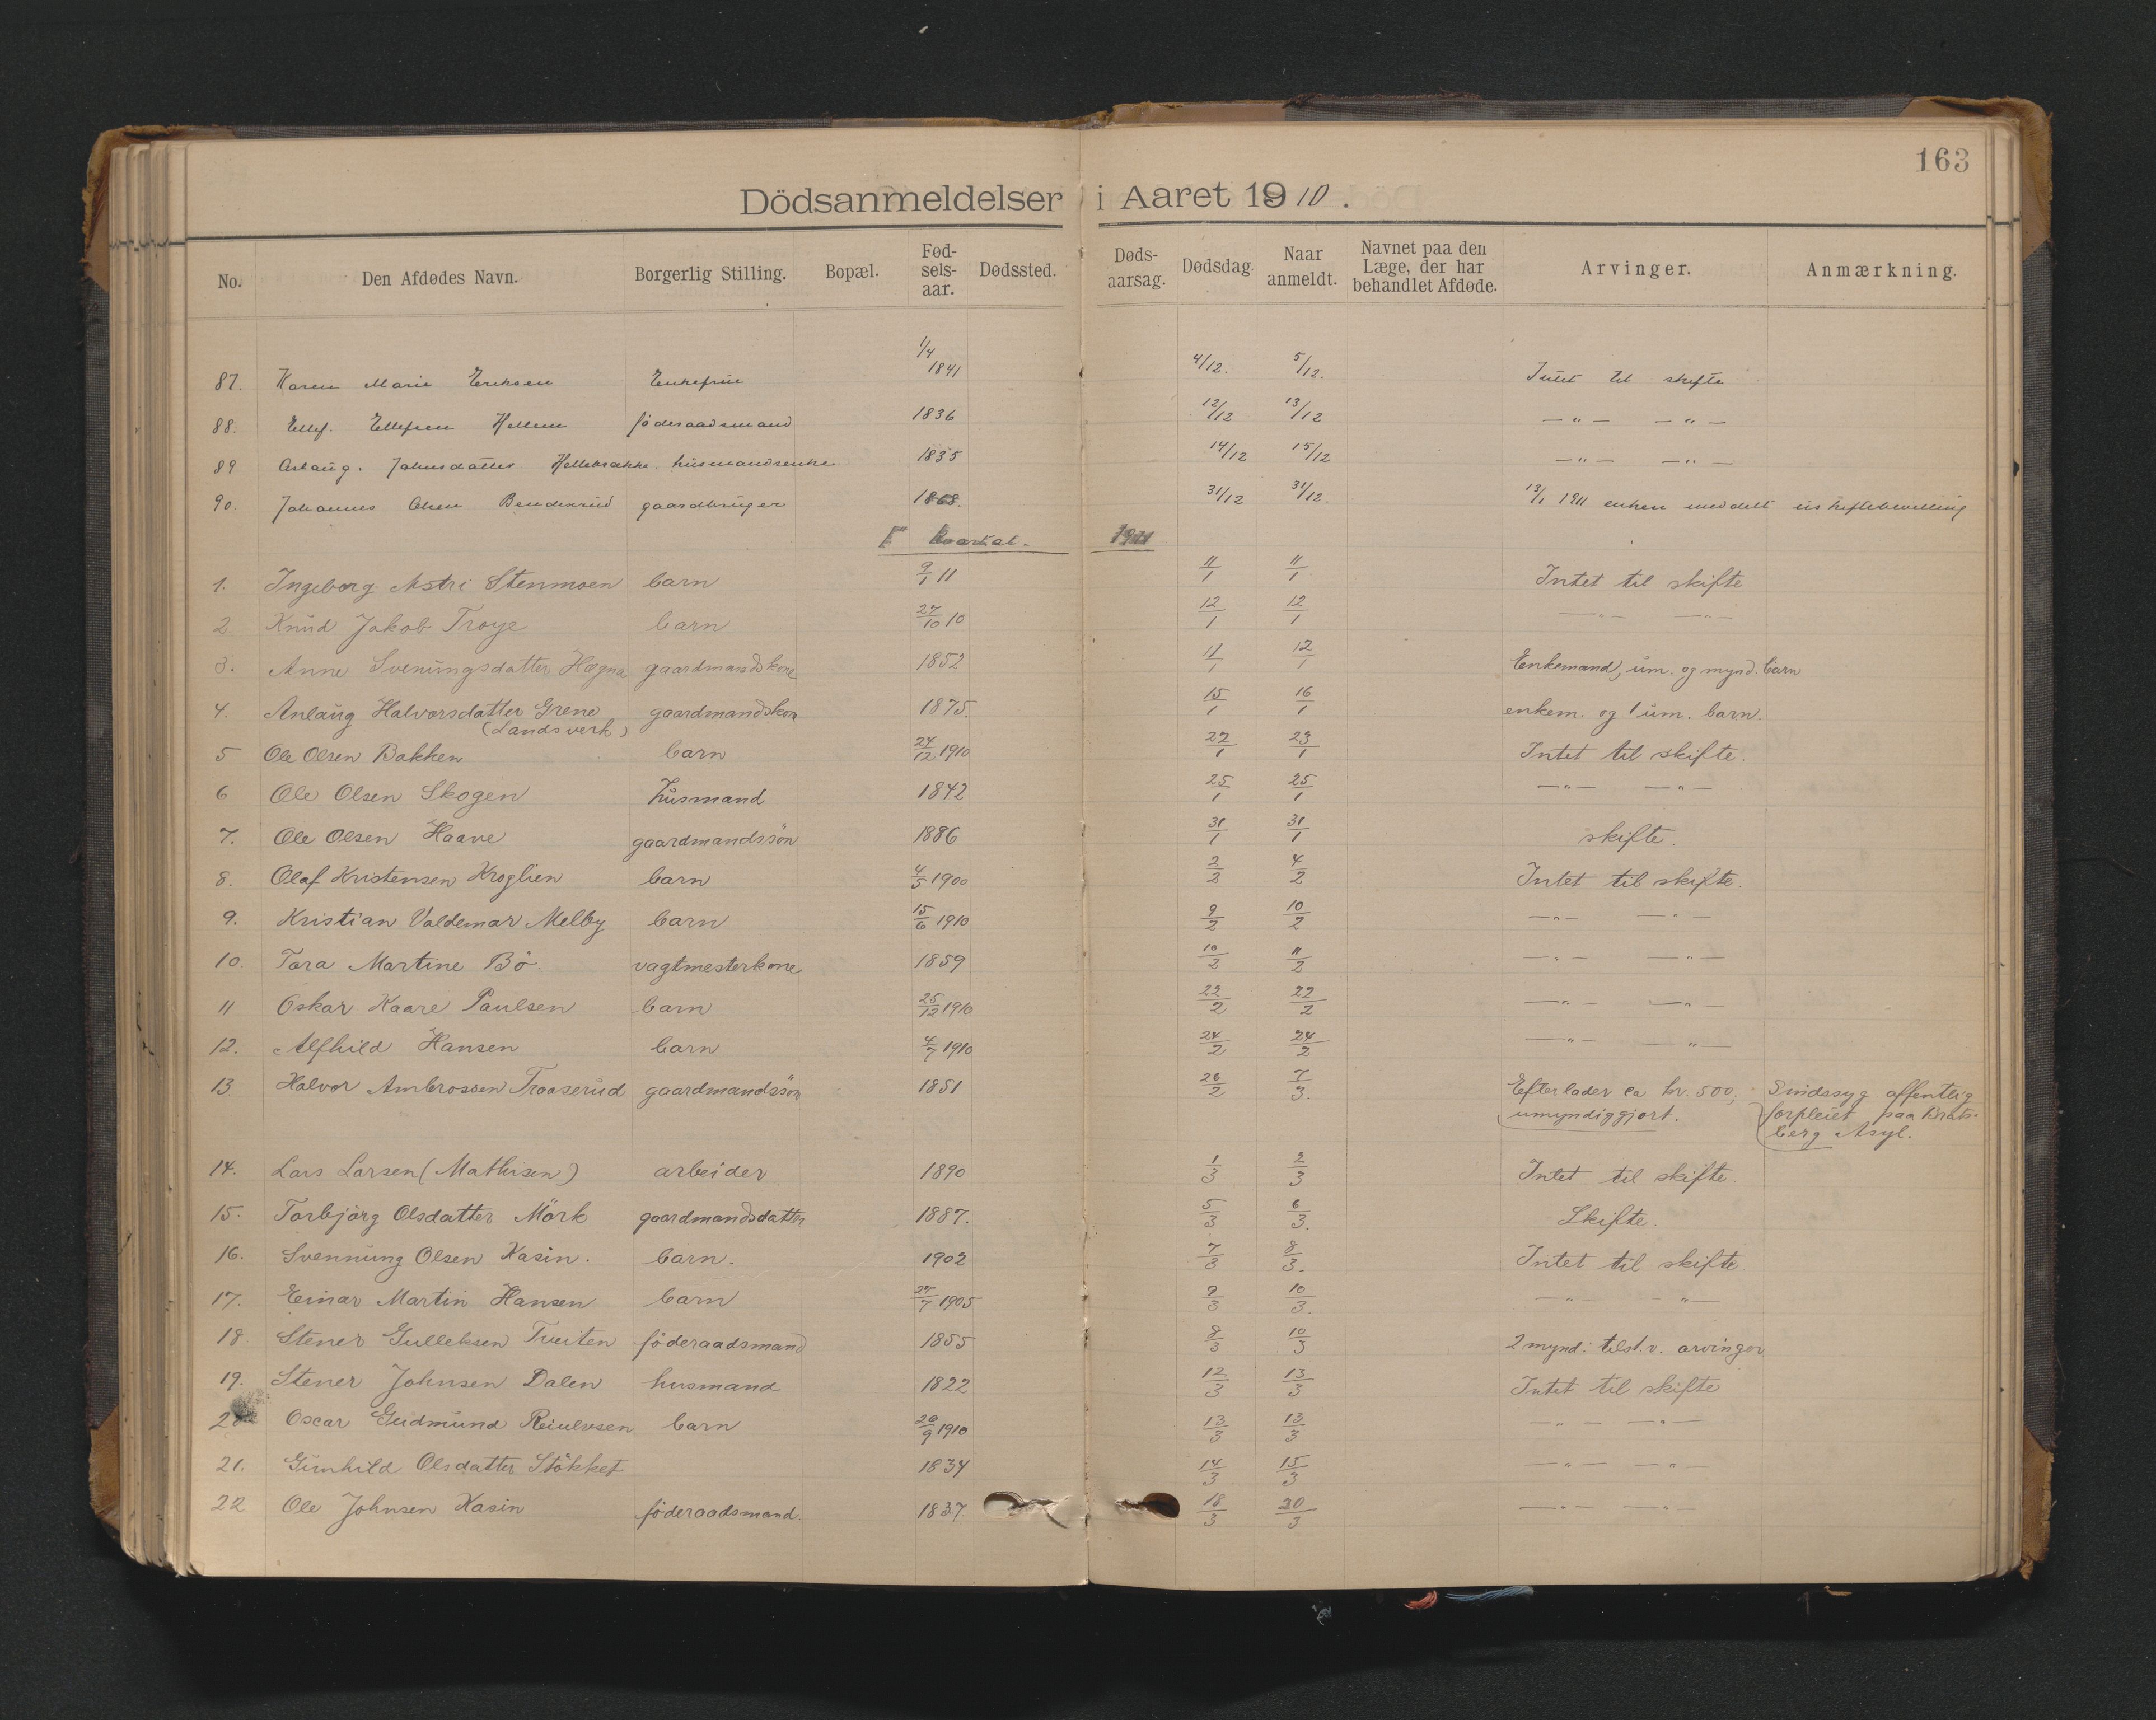 163
Dödsanmeldelser i Aaret 1910.
No. Den Afdødes Navn. Borgerlig Stilling. Bopæl. Fød-sels-aar. Dødssted. Døds-aarsag. Dødsdag. Naar anmeldt. Navnet paa den Læge, der har behandlet Afdøde. Arvinger. Anmærkning.
87. Karen Marie Eriksen Enkefrue 1/4 1841 4/12. 5/12. Intet til skifte
88. Ellef. Ellefsen Hellem föderaadsmand 1836 12/12 13/12 —"— —"—
89 Aslaug. Johnsdatter husmandsenke 1835 14/12 15/12 —"— —"—
90. Johannes Olsen gaardbruger 1868. 31/12 31/12. 13/1 1911 enken meddelt uskiftebevilling
I Kvartal. 1911
1. Ingeborg Astri Stenmoen barn 9/1 11 11/1 11/1 Intet til skifte
2. Knud Jakob Troye barn 27/10 10 12/1 12/1 —"— —"—
3. Anne Svenungsdatter Hægna gaardmandskone 1852 11/1 12/1 Enkemand, um. og mynd. barn
4. Anlaug Halvorsdatter Grene gaardmandskon 1875. 15/1 16/1 enkem. og 1 um. barn.
(Landsverk)
5 Ole Olsen Bakken barn 24/12 1910 22/1 23/1 Intet til skifte.
6 Ole Olsen Skogen husmand 1842 25/1 25/1 —"— —"—
7. Ole Olsen Haave gaardmandssön 1886 31/1 31/1 skifte.
8. Olaf Kristensen Kroglien barn 4/5 1900 2/2 4/2 Intet til skifte.
9. Kristian Valdemar Melby barn 15/6 1910 9/2 10/2 —"— —"—
10. Tora Martine Bö. vagtmesterkone 1859 10/2 11/2 —"— —"—
11 Oskar Kaare Paulsen barn 25/12 1910 22/2 22/2 —"— —"—
12. Alfhild Hansen barn 4/7 1910 24/2 24/2 —"— —"—
13 Halvor Ambrossen Traaserud gaardmandssön 1851 26/2 7/3. Efterlader ca kr. 500, Sindssyg offentlig
umyndiggjort. forpleiet paa Brats-
berg Asyl.
14. Lars Larsen (Mathisen) arbeider 1890 1/3 2/3 Intet til skifte.
15. Torbjörg Olsdatter Mörk gaardmandsdatter 1887. 5/3 6/3. Skifte.
16. Svennung Olsen Kasin. barn. 1902 7/3 8/3. Intet til skifte
17. Einar Martin Hansen barn 27/7 1905 9/3 10/3. —"— —"—
18. Stener Gulleksen Tveiten föderaadsmand 1855 8/3 10/3 2 mynd. tilst.v. arvinger
19. Stener Johnsen Dalen husmand 1822 12/3 13/3 Intet til skifte
20 Oscar Gudmund Reiulvsen barn 26/9 1910 13/3 13/3 —"— —"—
21. Gunhild Olsdatter Stökket 1834 14/3 15/3 —"— —"—
22 Ole Johnsen Kasin föderaadsmand. 1837. 18/3 20/3 —"— —"—